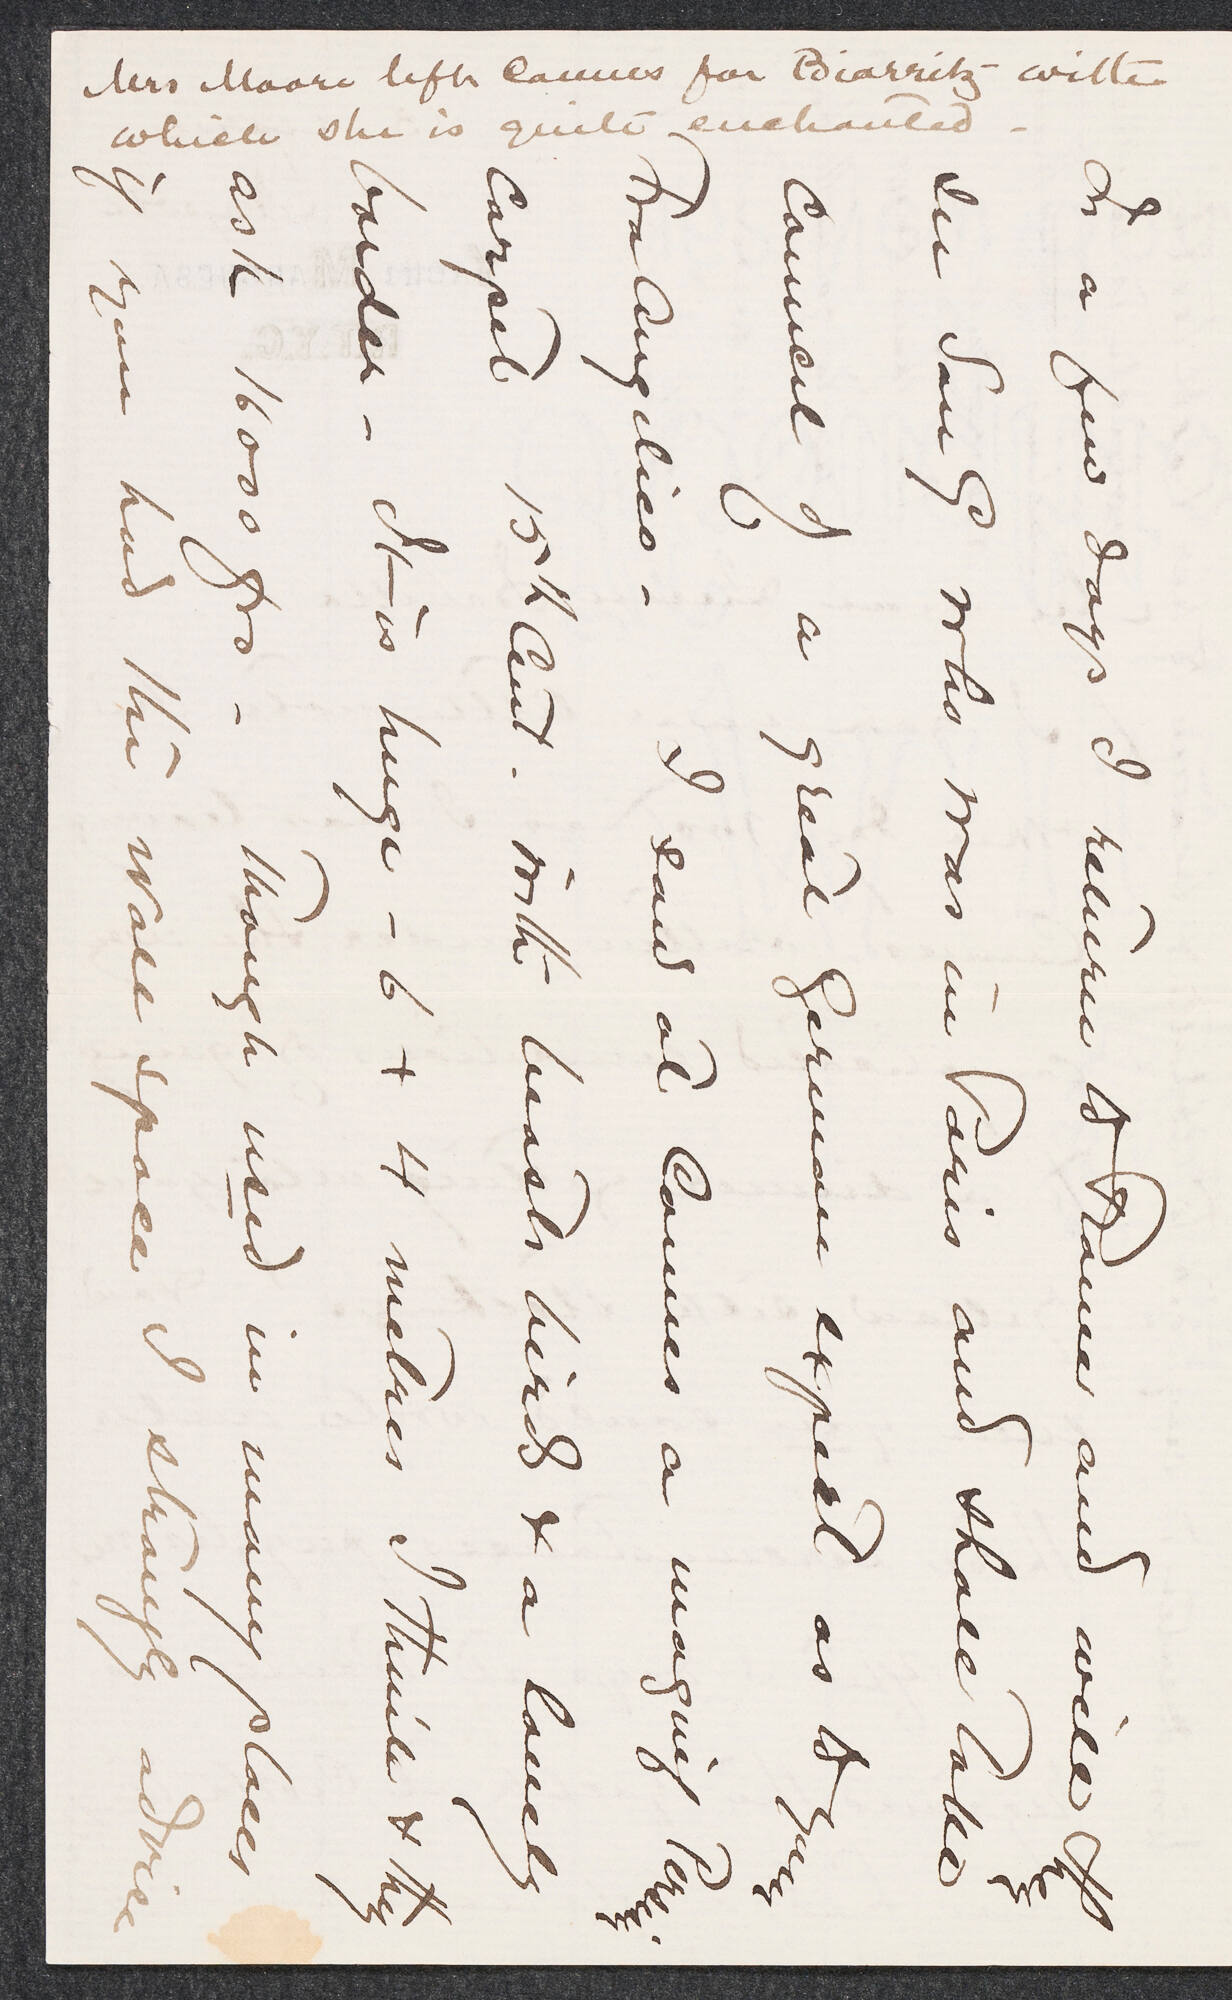 Mrs Moore left Cannes for Biarritz with
which she is quite enchanted -
In a few days I return to Rome and will
see Sang who was in Paris and shall take
Council of a great German expert as to your
Fra Angelico - I saw at Cannes a magnif
carpet 15th Cent. with beasts birds & a lovely
border - It is huge - 6 + 4 metres I think & they
ask 16000 frs - though used in many places
If you had the wall space I strongly advise